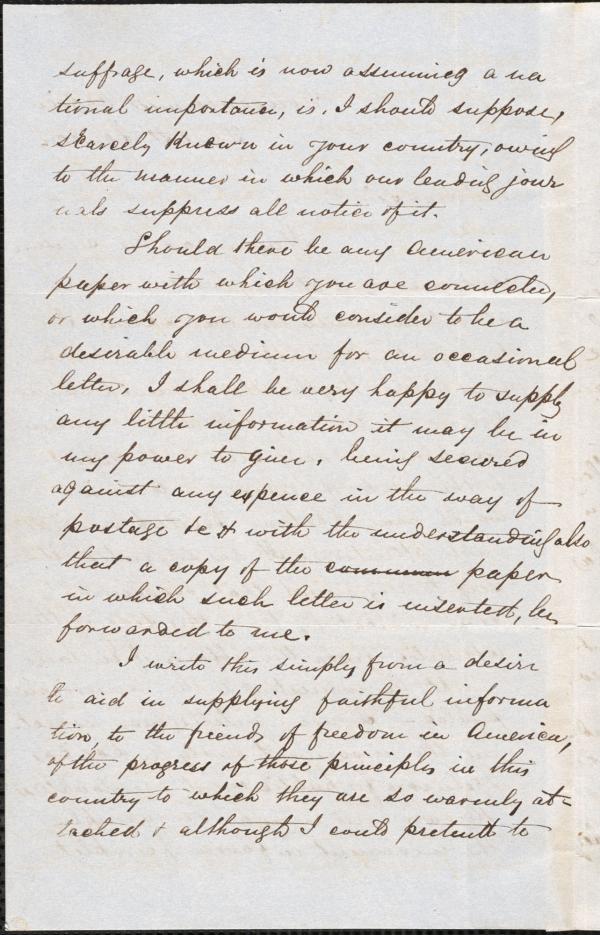 suffrage, which is now assuming a na
tional importance, is, I should suppose,
scarcely known in your country, owing
to the manner in which our leading jour
nals suppress all notice of it.
Should there be any American
paper with which you are connected,
or which you would consider to be a
desirable medium for an occasional
letter, I shall be very happy to supply
any little information it may be in
my power to give, being secured
against any expence in the way of
postage &c & with the understanding also
that a copy of the paper
in which such letter is inserted, be
forwarded to me.
I write this simply from a desire
to aid in supplying faithful informa
tion, to the friends of freedom in America,
of the progress of those principles in this
country to which they are so warmly at-
tached & although I could pretend to